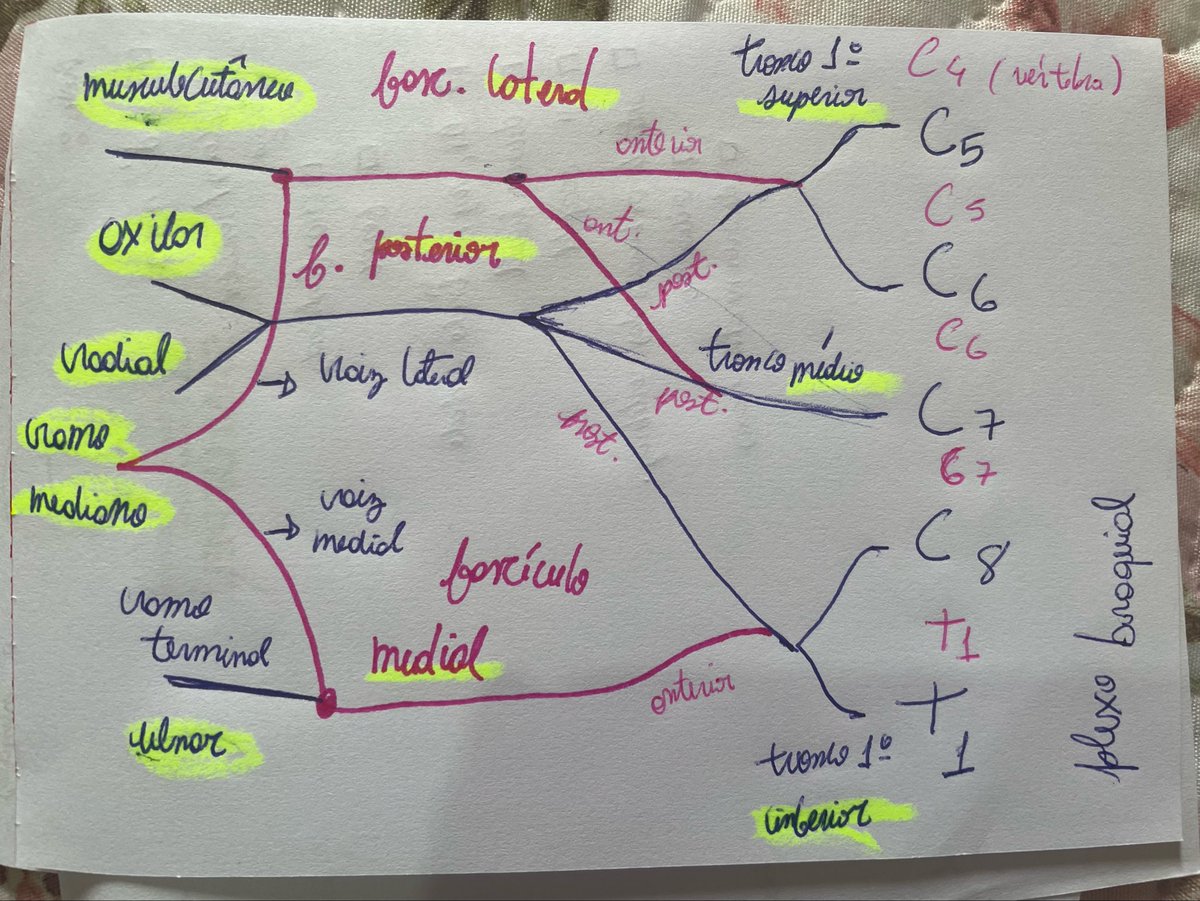 musculocutâneo
fasc. lateral
tronco 1º
superior
C4 (vértebra)
C5
anterior
C5
axilar
f. posterior
ant.
post.
C6
C6
radial
raiz lateral
tronco médio
post.
C7
ramo
mediano
post.
C7
raiz
medial
fascículo
C8
ramo
terminal
medial
T1
anterior
T1
ulnar
tronco 1º
inferior
plexo braquial